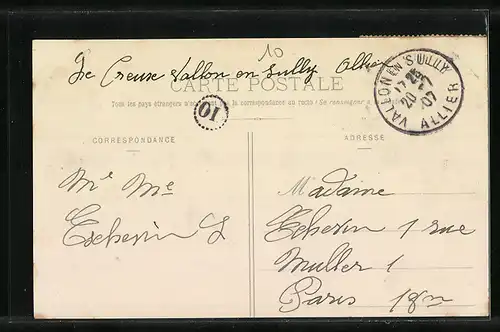 10
Le Creuse Vallon en Sully Allier
CARTE POSTALE
Tous les pays étrangers n'acceptent pas la correspondance au recto (Se renseigner
VALLON EN SULLY
17 25
20 -7
07
ALLIER
OI
CORRESPONDANCE
ADRESSE
Mr Me
Eschevin L
Madame
Echevin 1 rue
Muller 1
Paris 18m